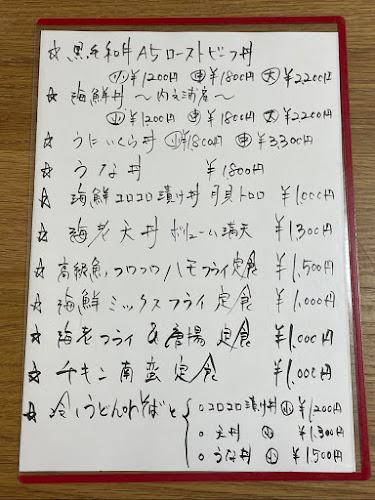 ☆ 黒毛和牛 A5ローストビーフ丼
小 ¥1200円 中 ¥1800円 大 ¥2,200円
☆ 海鮮丼 〜内之浦産〜
小 ¥1200円 中 ¥1800円 大 ¥2,200円
☆ うにいくら丼 小 ¥1,800円 中 ¥3,300円
☆ うな丼 ¥1800円
☆ 海鮮コロコロ漬け丼 月見トロロ ¥1,000円
☆ 海老天丼 ボリューム満天 ¥1,300円
☆ 高級魚、フワフワハモフライ定食 ¥1,500円
☆ 海鮮ミックスフライ定食 ¥1,000円
☆ 海老フライ & 唐揚定食 ¥1,000円
☆ チキン南蛮定食 ¥1,000円
☆ 冷、うどんorそばと
○コロコロ漬け丼 小 ¥1,200円
○天丼 小 ¥1,300円
○うな丼 小 ¥1500円